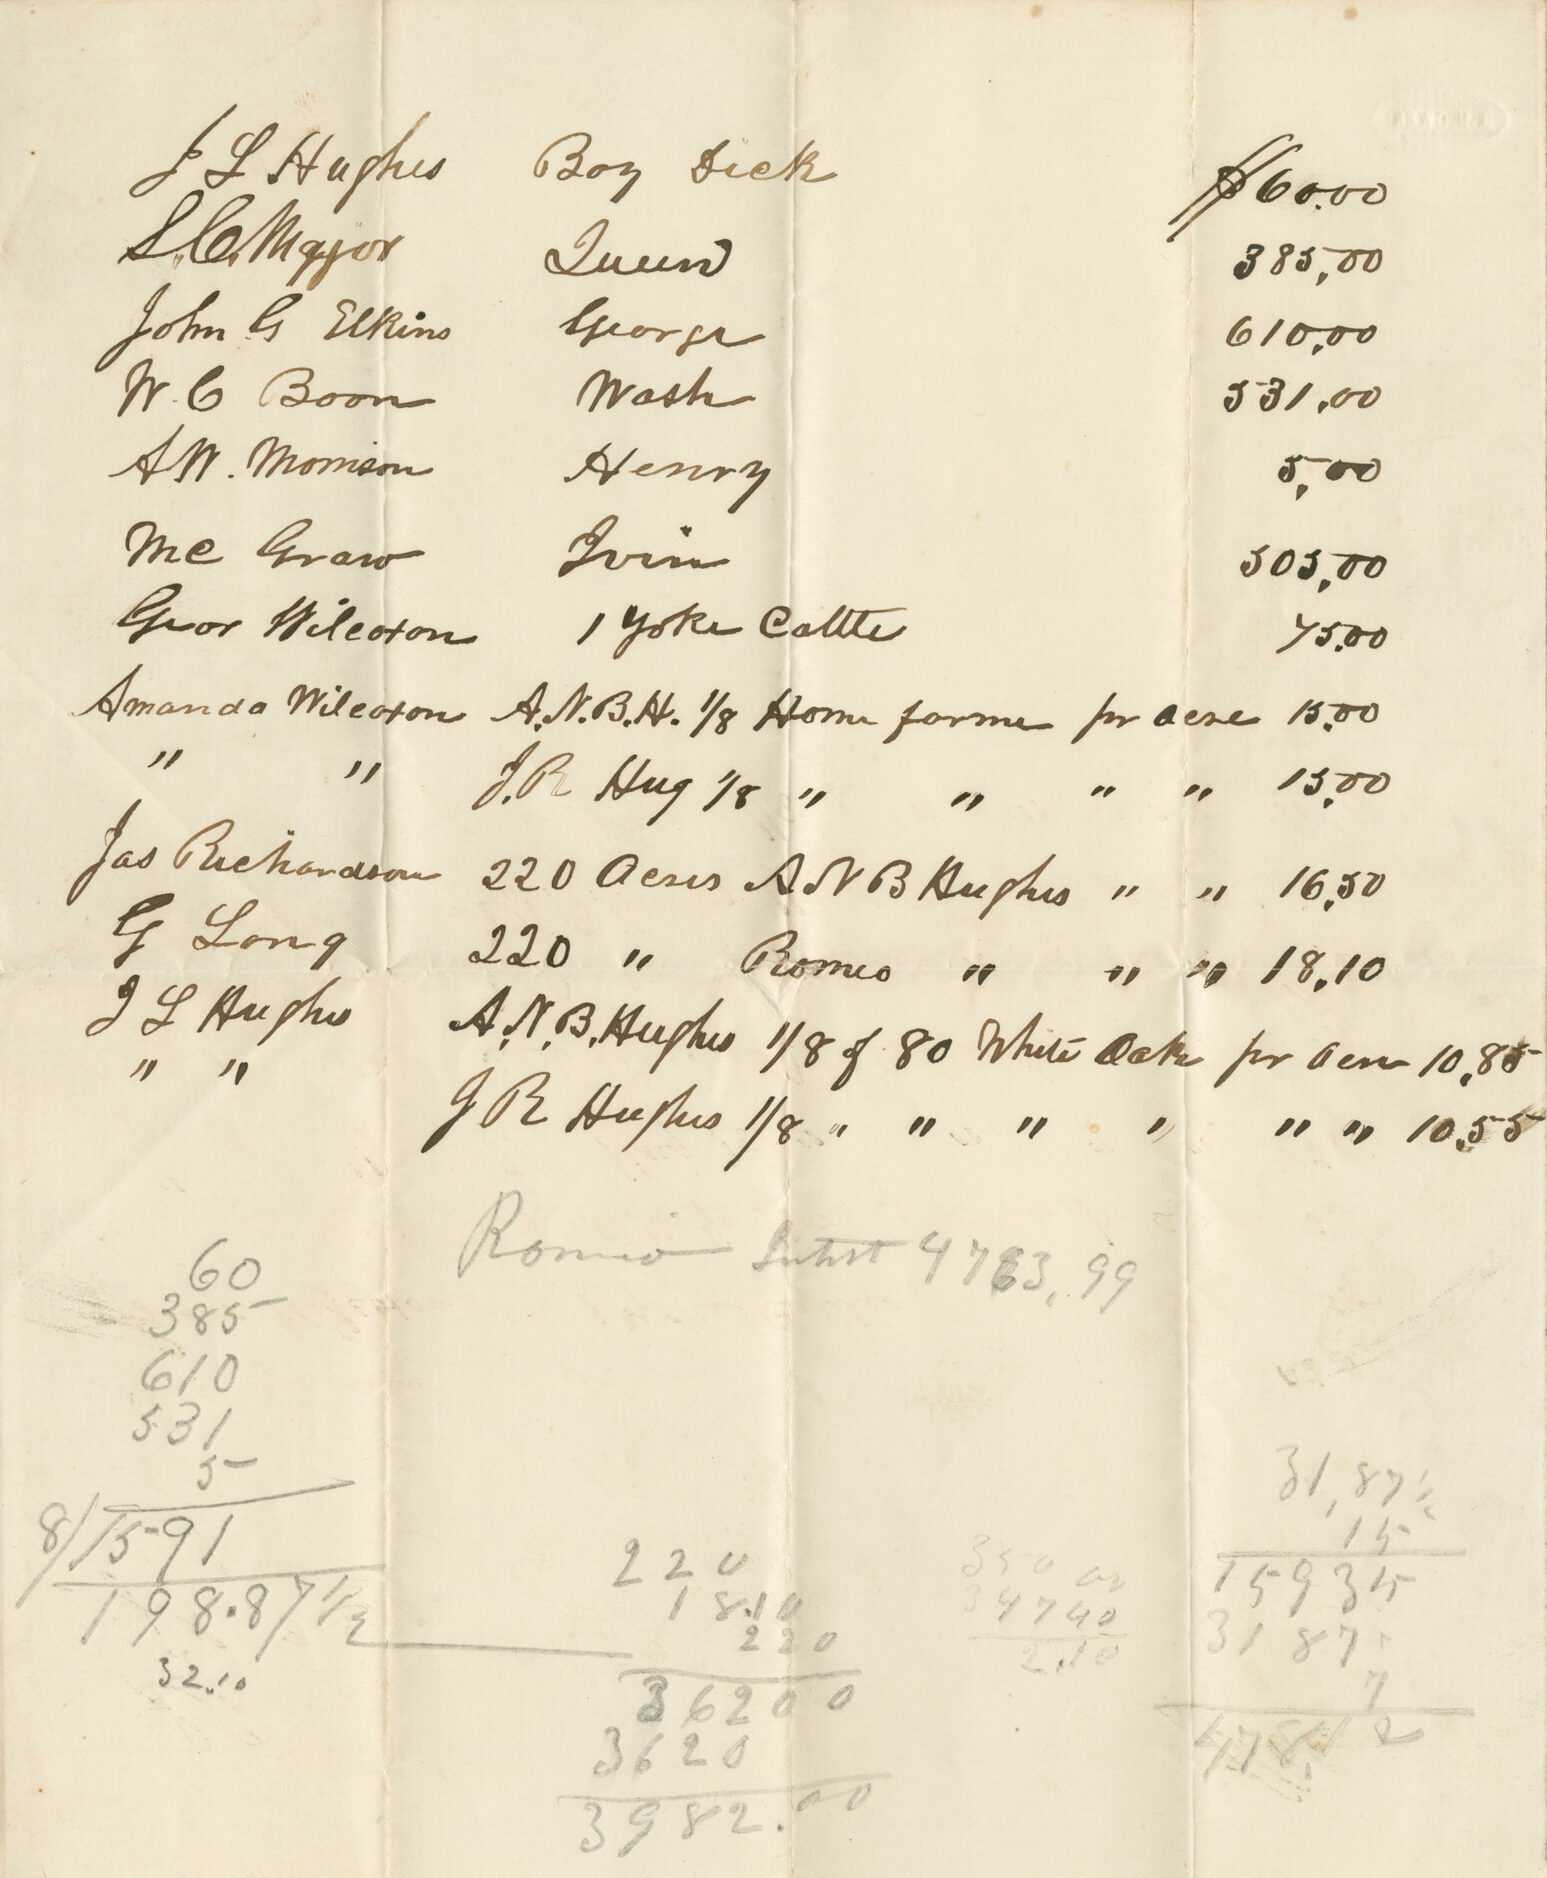 J L Hughes Boy Dick $60.00
S. C. Major Queen 385,00
John G Elkins George 610,00
W. C Boon Wash 531,00
A W. Morrison Henry 5,00
Mc Graw Irvin 505,00
Geor Wilcoxon 1 Yoke Cattle 75.00
Amanda Wilcoxon A. N. B. H. 1/8 Home farme pr acre 15.00
" " J. R Hug 1/8 " " " " 15,00
Jas Richardson 220 Acres A N B Hughes " " 16,50
G Long 220 " Romeo " " " 18,10
J L Hughes A. N. B. Hughes 1/8 of 80 White Oak pr acre 10,85
" " J R Hughes 1/8 " " " " " " 10,55
Romeo Intrst 4763,99
60
385
610
531
5
8/1591
198.87 1/2
32.10
220
18.10
220
36200
3620
3982.00
350
34740
2.10
31,87 1/2
15
15935
3187
7
478.12